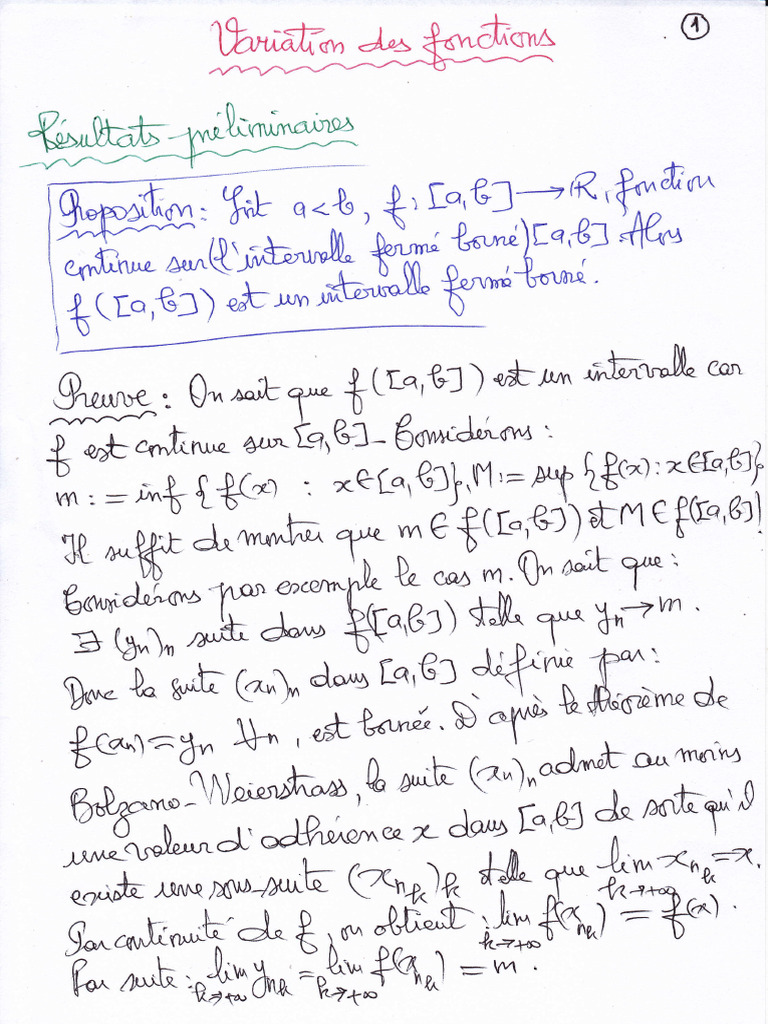 Variation des fonctions
1
Résultats préliminaires
Proposition : Soit a < b, f : [a, b] → ℝ, fonction
continue sur (l'intervalle fermé borné) [a, b]. Alors
f([a, b]) est un intervalle fermé borné.
Preuve : On sait que f([a, b]) est un intervalle car
f est continue sur [a, b]_ Considérons :
m := inf { f(x) : x ∈ [a, b] }, M := sup { f(x) : x ∈ [a, b] }.
Il suffit de montrer que m ∈ f([a, b]) et M ∈ f([a, b])
Considérons par exemple le cas m. On sait que :
∃ (yₙ)ₙ suite dans f([a, b]) telle que yₙ → m.
Donc la suite (xₙ)ₙ dans [a, b] définie par :
f(xₙ) = yₙ ∀n, est bornée. D'après le théorème de
Bolzano-Weierstrass, la suite (xₙ)ₙ admet au moins
une valeur d'adhérence x dans [a, b] de sorte qu'il
existe une sous-suite (x_{n_k})_k telle que lim_{k→+∞} x_{n_k} = x.
Par continuité de f, on obtient : lim_{k→+∞} f(x_{n_k}) = f(x).
Par suite : lim_{k→+∞} y_{n_k} = lim_{k→+∞} f(x_{n_k}) = m.